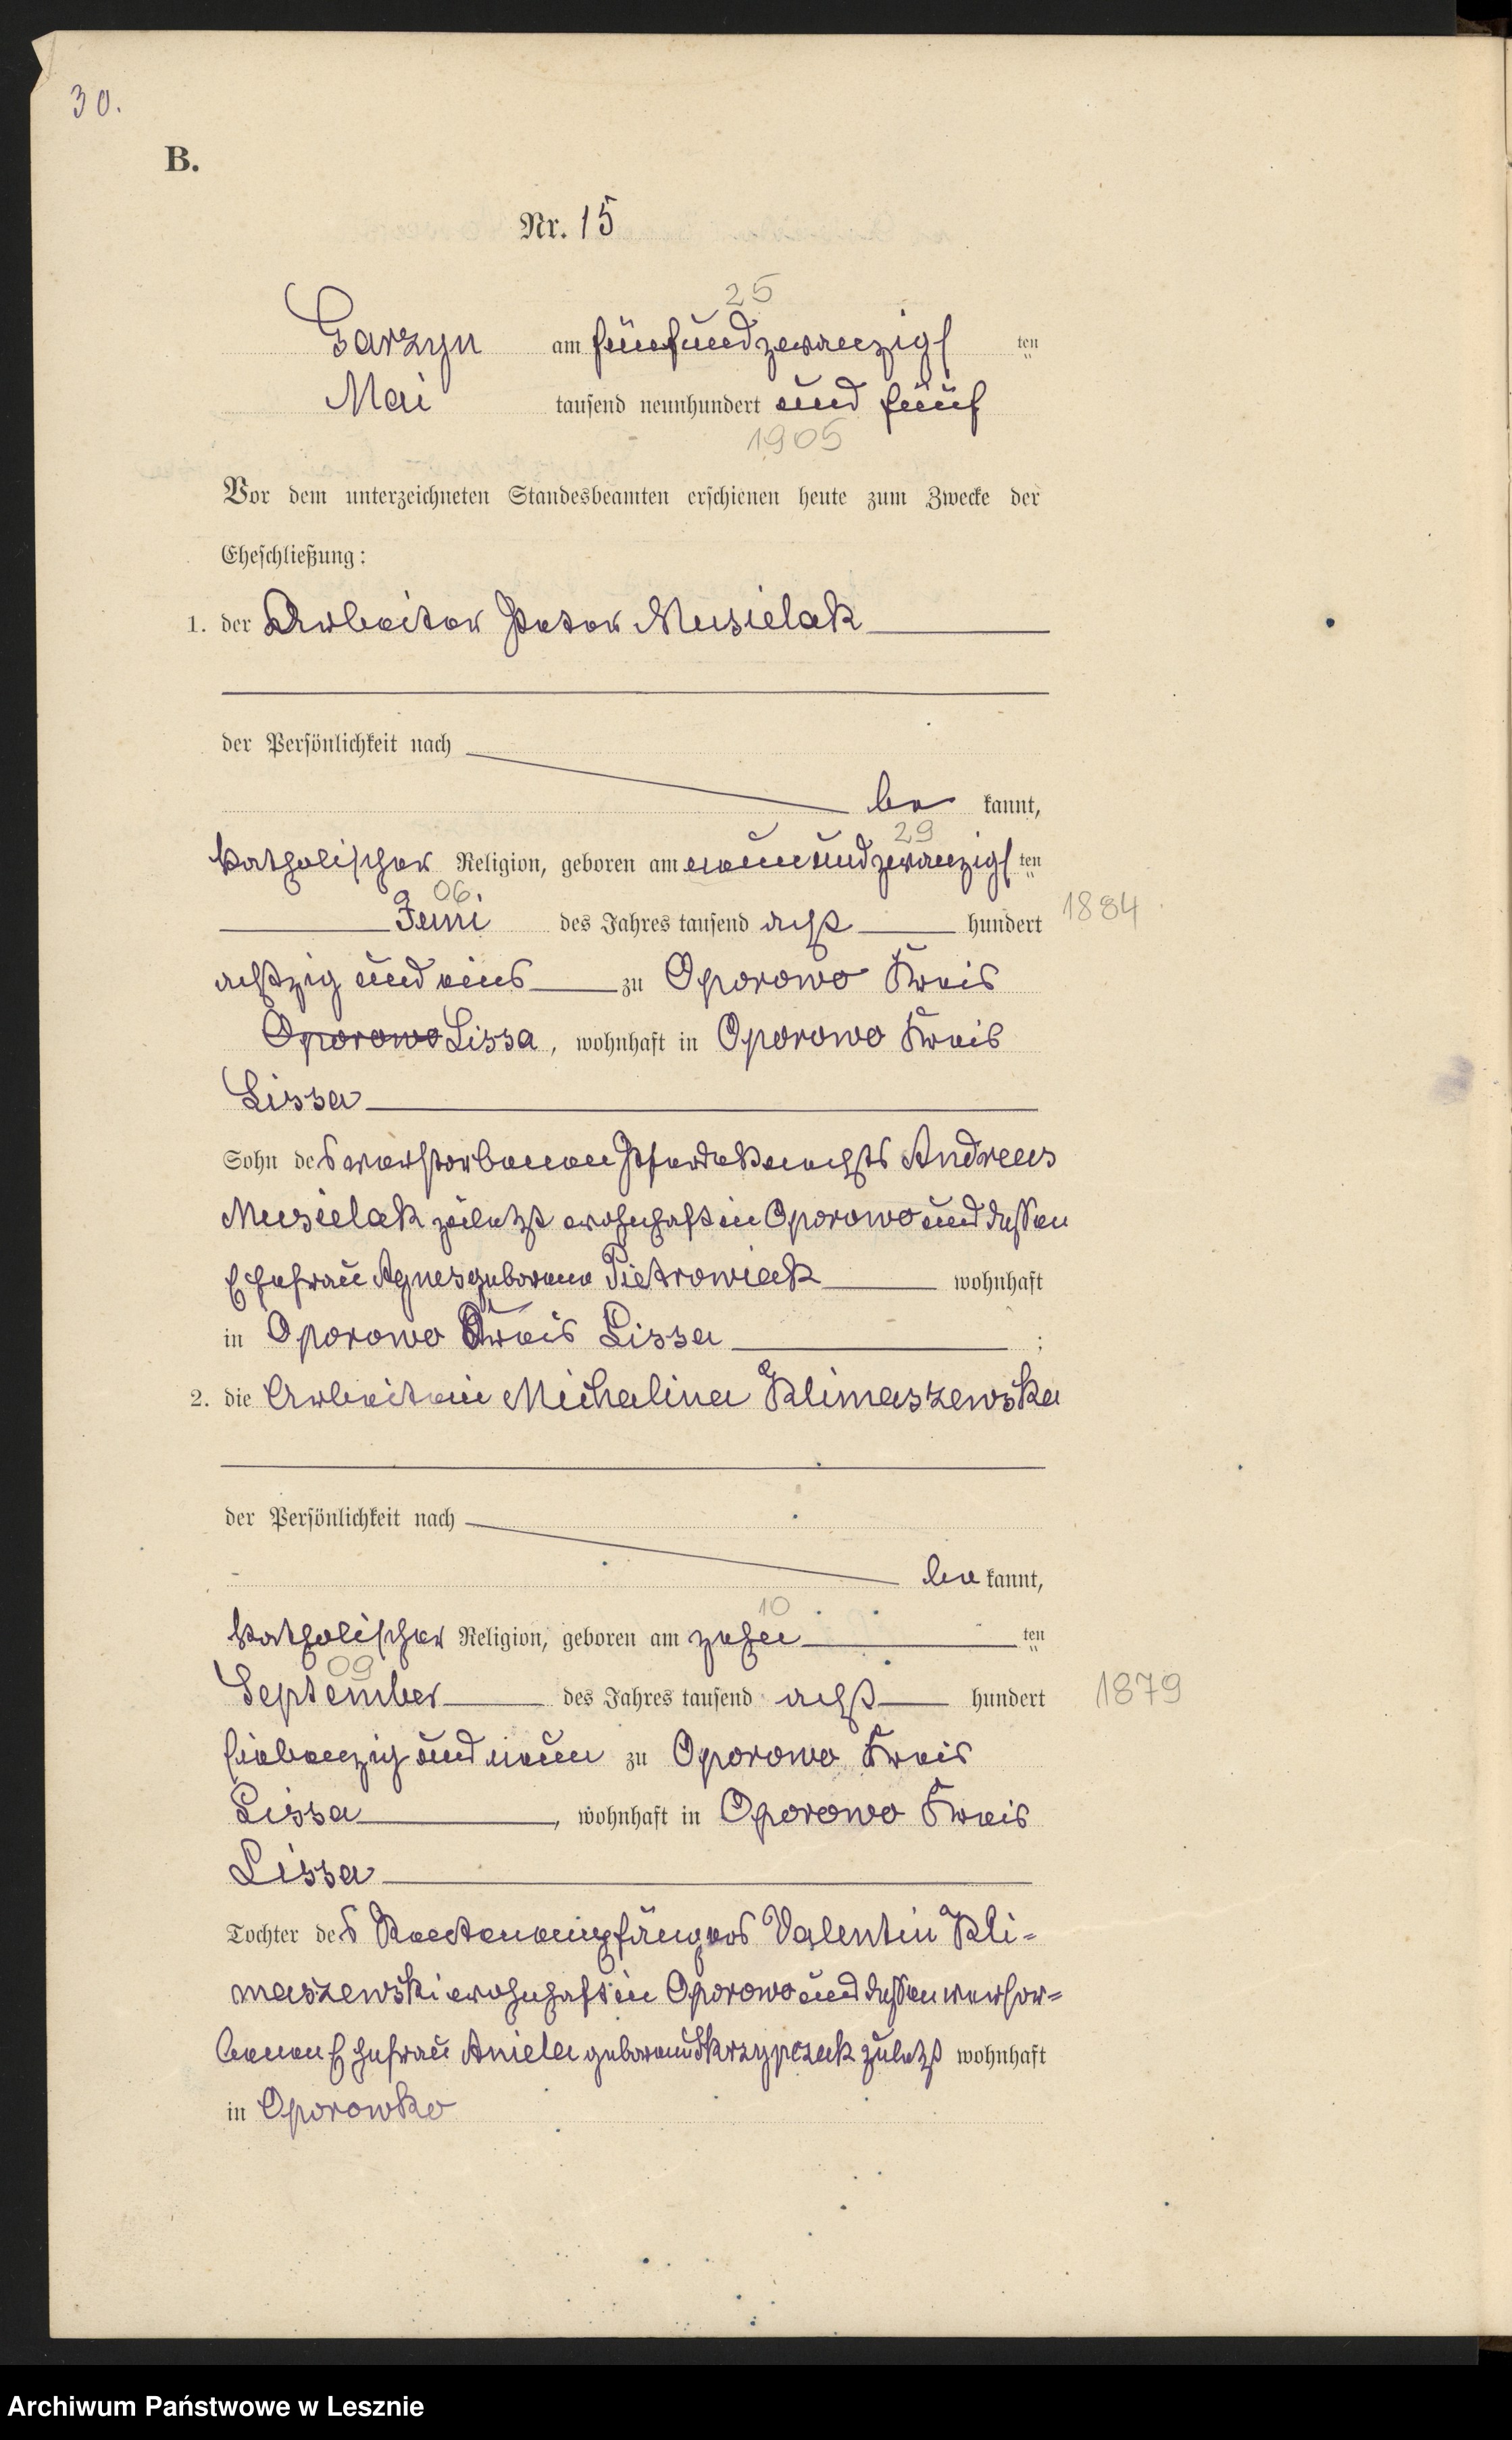 30.
B.
Nr. 15
25
Garzyn am fünfundzwanzigs ten
Mai tausend neunhundert und fünf
1905
Vor dem unterzeichneten Standesbeamten erschienen heute zum Zwecke der
Eheschließung:
1. der Arbeiter Peter Musielak
der Persönlichkeit nach
be kannt,
29
katholischer Religion, geboren am neunundzwanzigs ten
06
Juni des Jahres tausend acht hundert 1884
achtzig und eins zu Oporowo Kreis
Oporowo Lissa, wohnhaft in Oporowo Kreis
Lissa
Sohn des verstorbenen Pferdeknechts Andreas
Musielak zuletzt wohnhaft in Oporowo und dessen
Ehefrau Agnes geborene Pietrowiak wohnhaft
in Oporowo Kreis Lissa ;
2. die Arbeiterin Michalina Klimaszewska
der Persönlichkeit nach
be kannt,
10
katholischer Religion, geboren am zehn ten
09
September des Jahres tausend acht hundert 1879
siebenzig und neun zu Oporowo Kreis
Lissa, wohnhaft in Oporowo Kreis
Lissa
Tochter des Rentenempfängers Valentin Kli-
maszewski wohnhaft in Oporowo und dessen verstor-
benen Ehefrau Aniela geborene Skrzypczak zuletzt wohnhaft
in Oporowko
Archiwum Państwowe w Lesznie